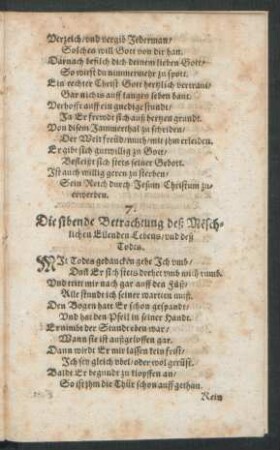 Verzeich/vnd vergib Jederman/
Solches will Gott von dir han.
Darnach befilch dich deinem lieben Gott/
So wirst du nimmermehr zu spott.
Ein rechter Christ Gott hertzlich vertraut/
Gar nichts auff langes leben baut.
Verhofft auff ein gnedige stundt/
Ja Er frewdt sich auß hertzen grundt.
Von disem Jammerthal zu scheiden/
Der Welt frewd/muß/mit jhm erleiden.
Er gibt sich gutwillig zu Gott/
Befleißt sich stets seiner Gebott.
Ist auch willig geren zu sterben/
Sein Reich durch Jesum Christum zu-
erwerben.
7.
Die sibende Betrachtung deß Mësch-
lichen Ellenden-Lebens/vnd deß
Todes.
MIt Todes gedancken gehe Ich vmb/
Daß Er sich stets drehet vmb mich rumb.
Vnd tritt mir nach gar auff den Füß/
Alle stund ich seiner warten muß.
Den Bogen hatt Er schon gespandt/
Vnd hat den Pfeil in seiner Handt.
Er nimbt der Stundt eben war/
Wann sie ist außgeloffen gar.
Dann wirdt Er mir lassen kein frist/
Ich sey gleich vbel/oder wol gerüst.
Baldt Er begundt zu klopffen an/
So ist jhm die Thür schon auff gethan.
Kein